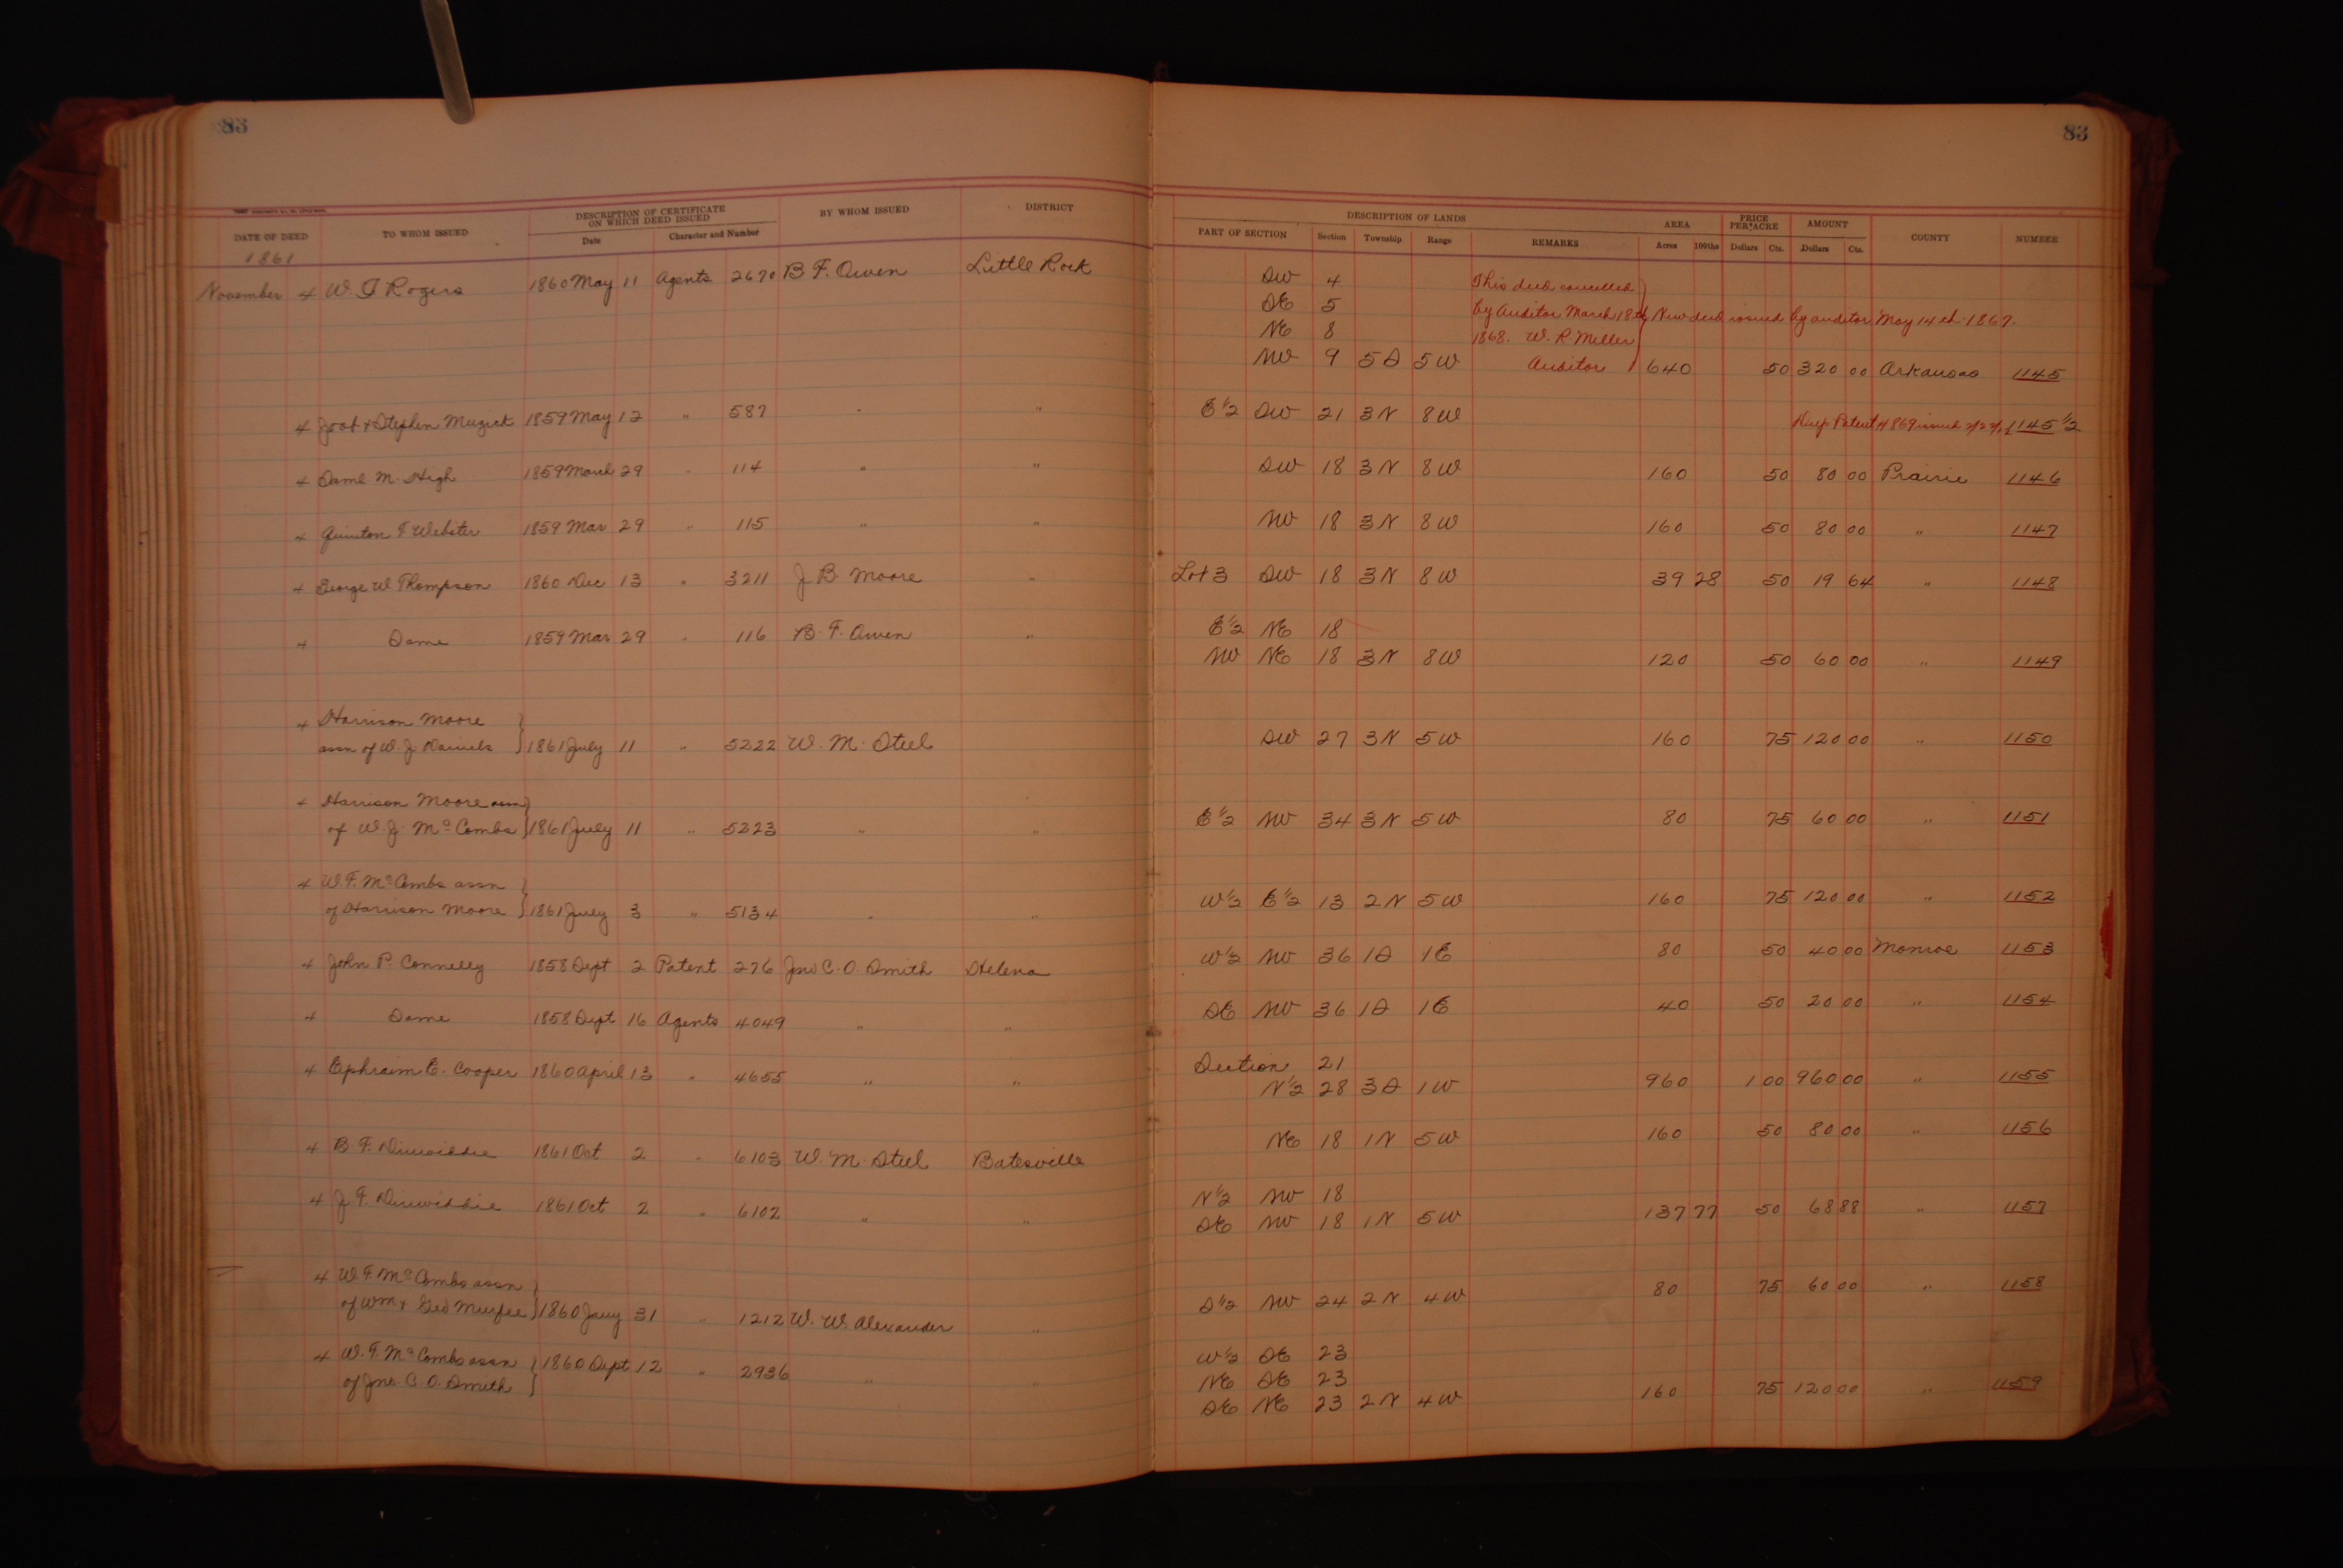 83 83
DATE OF DEED TO WHOM ISSUED DESCRIPTION OF CERTIFICATE ON WHICH DEED ISSUED Date Character and Number BY WHOM ISSUED DISTRICT DESCRIPTION OF LANDS PART OF SECTION Section Township Range REMARKS AREA Acres 100ths PRICE PER ACRE Dollars Cts. AMOUNT Dollars Cts. COUNTY NUMBER
1861
November 4 W. T Rogers 1860 May 11 Agents 2670 B. F. Owen Little Rock SW 4 This deed cancelled
SE 5 by Auditor March 18th New deed issued by auditor May 14th 1867.
NE 8 1868. W. R. Miller
NW 9 5 S 5 W Auditor 640 50 320 00 Arkansas 1145
4 Joab & Stephen Mugick 1859 May 12 " 587 " " E 1/2 SW 21 3 N 8 W Dup Patent # 869 issued 1145 1/2
4 Saml M. High 1859 March 29 " 114 " " SW 18 3 N 8 W 160 50 80 00 Prairie 1146
4 Quinton F Webster 1859 Mar 29 " 115 " " NW 18 3 N 8 W 160 50 80 00 " 1147
4 George W Thompson 1860 Dec 13 " 3211 J B. Moore " Lot 3 SW 18 3 N 8 W 39 28 50 19 64 " 1148
4 Same 1859 Mar 29 " 116 B. F. Owen " E 1/2 NE 18
NW NE 18 3 N 8 W 120 50 60 00 " 1149
4 Harrison Moore
assn of W. J. Daniels 1861 July 11 " 5222 W. M. Steel SW 27 3 N 5 W 160 75 120 00 " 1150
4 Harrison Moore assn
of W. J. McCombs 1861 July 11 " 5223 " " E 1/2 NW 34 3 N 5 W 80 75 60 00 " 1151
4 W. F. McCombs assn
of Harrison Moore 1861 July 3 " 5134 " " W 1/2 E 1/2 13 2 N 5 W 160 75 120 00 " 1152
4 John P. Connelly 1858 Sept 2 Patent 276 Jno C. O. Smith Helena W 1/2 NW 36 1 S 1 E 80 50 40 00 Monroe 1153
4 Same 1858 Sept 16 Agents 4049 " " SE NW 36 1 S 1 E 40 50 20 00 " 1154
4 Ephraim E. Cooper 1860 April 13 " 4655 " " Section 21
N 1/2 28 3 S 1 W 960 1 00 960 00 " 1155
4 B. F. Dinwiddie 1861 Oct 2 " 6103 W. M. Steel Batesville NE 18 1 N 5 W 160 50 80 00 " 1156
4 J. F. Dinwiddie 1861 Oct 2 " 6102 " " N 1/2 NW 18
SE NW 18 1 N 5 W 137 77 50 68 88 " 1157
4 W. F. McCombs assn
of Wm & Geo Murfee 1860 Jany 31 " 1212 W. W. Alexander " S 1/2 NW 24 2 N 4 W 80 75 60 00 " 1158
4 W. F. McCombs assn 1860 Sept 12 " 2936 " " W 1/2 SE 23
of Jno. C. O. Smith NE SE 23
SE NE 23 2 N 4 W 160 75 120 00 " 1159